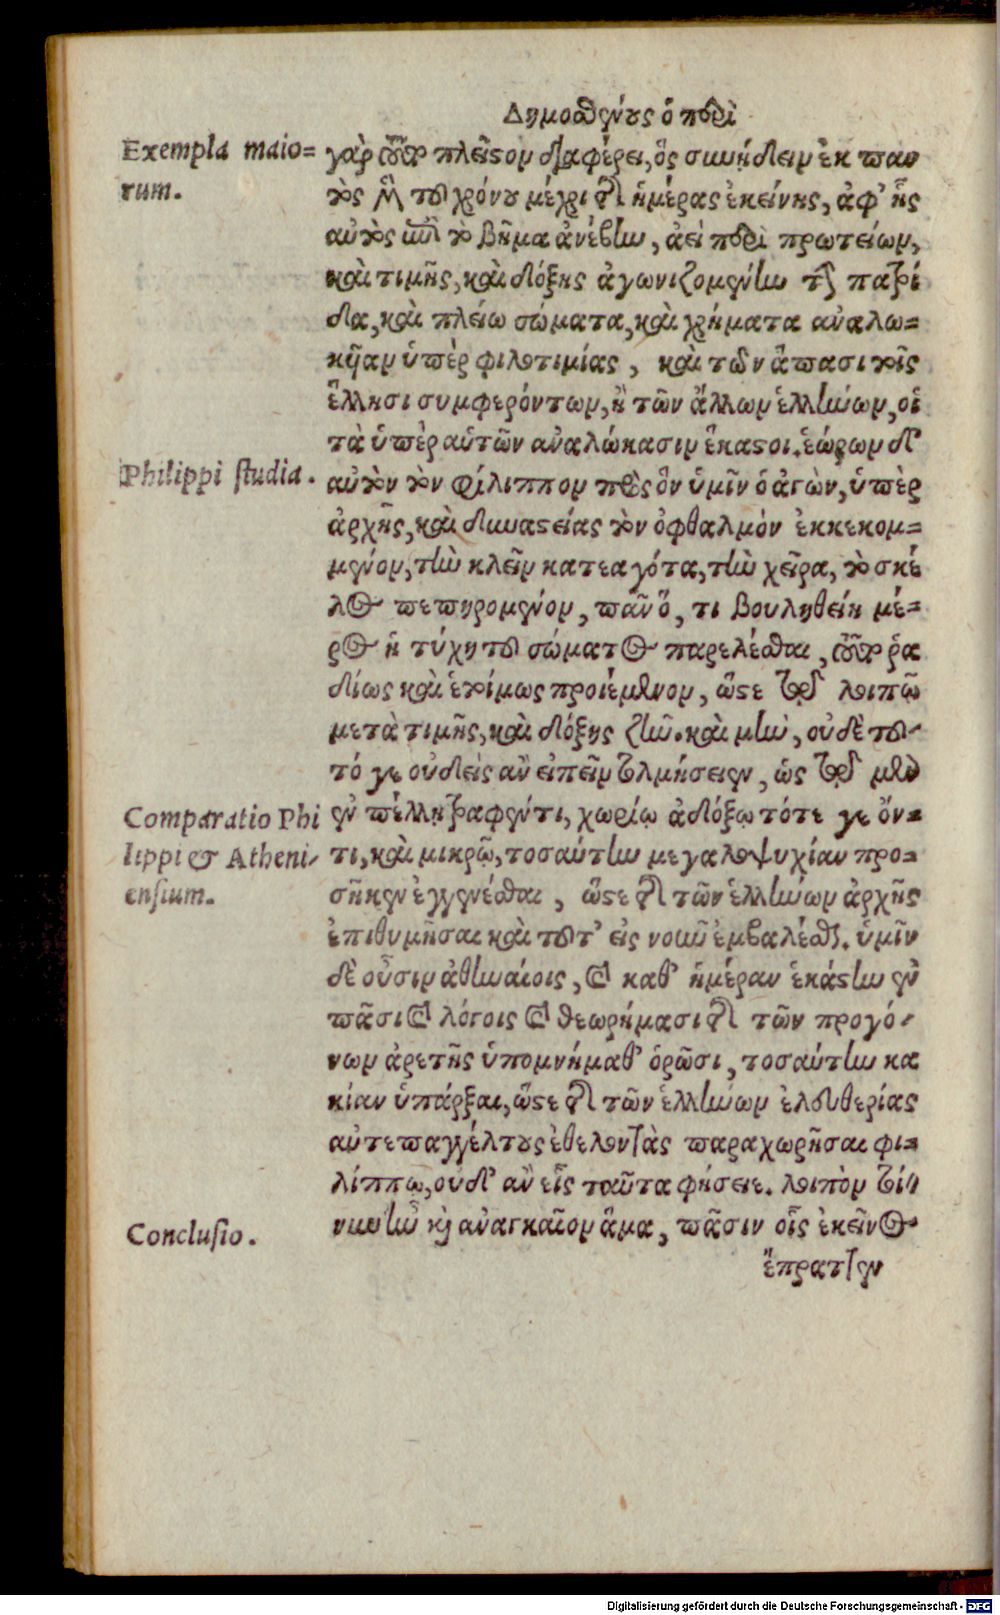 Δημοσθένους ὁ περὶ
Exempla maio=
rum.
γὰρ τοῦτο πλεῖστον διαφέρει, ὃς συνῄδειν ἐκ παν
τὸς μὲν τοῦ χρόνου μέχρι τῆς ἡμέρας ἐκείνης, ἀφ' ἧς
αὐτὸς ἐπὶ τὸ βῆμα ἀνέβην, ἀεὶ περὶ πρωτείων,
καὶ τιμῆς, καὶ δόξης ἀγωνιζομένην τὴν πατρί
δα, καὶ πλείω σώματα, καὶ χρήματα ἀναλω=
κῆαν ὑπὲρ φιλοτιμίας, καὶ τῶν ἅπασι τοῖς
ἕλλησι συμφερόντων, ἢ τῶν ἄλλων ἑλλήνων, οἱ
τὰ ὑπὲρ αὑτῶν ἀναλώκασιν ἕκαστοι. ἑώρων δ'
Philippi studia.
αὐτὸν τὸν φίλιππον πρὸς ὃν ὑμῖν ὁ ἀγὼν, ὑπὲρ
ἀρχῆς, καὶ δυναστείας τὸν ὀφθαλμὸν ἐκκεκομ=
μένον, τὴν κλεῖν κατεαγότα, τὴν χεῖρα, τὸ σκέ
λος πεπηρομένον, πᾶν ὅ, τι βουληθείη μέ=
ρος ἡ τύχη τοῦ σώματος παρελέσθαι, τοῦτο ῥα
δίως καὶ ἑτοίμως προιέμενον, ὥστε τῷ λοιπῷ
μετὰ τιμῆς, καὶ δόξης ζῆν. καὶ μὴν, οὐδὲ τοῦ-
τό γε οὐδεὶς ἂν εἰπεῖν τολμήσειεν, ὡς τῷ μὲν
Comparatio Phi
lippi & Atheni-
ensium.
ἐν πέλλῃ τραφέντι, χωρίῳ ἀδόξῳ τότε γε ὄν=
τι, καὶ μικρῷ, τοσαύτην μεγαλοψυχίαν προ=
σῆκεν ἐγγενέσθαι, ὥστε τῆς τῶν ἑλλήνων ἀρχῆς
ἐπιθυμῆσαι καὶ τοῦτ' εἰς νοῦν ἐμβαλέσθαι. ὑμῖν
δὲ οὖσιν ἀθηναίοις, καὶ καθ' ἡμέραν ἑκάστην ἐν
πᾶσι καὶ λόγοις καὶ θεωρήμασι τῆς τῶν προγό-
νων ἀρετῆς ὑπομνήμαθ' ὁρῶσι, τοσαύτην κα
κίαν ὑπάρξαι, ὥστε τῆς τῶν ἑλλήνων ἐλευθερίας
αὐτεπαγγέλτους ἐθελοντὰς παραχωρῆσαι φι=
λίππῳ, οὐδ' ἂν εἷς ταῦτα φήσειε. λοιπὸν τοί-
Conclusio.
νυν ἦν καὶ ἀναγκαῖον ἅμα, πᾶσιν οἷς ἐκεῖνος
ἔπραττεν
Digitalisierung gefördert durch die Deutsche Forschungsgemeinschaft - DFG